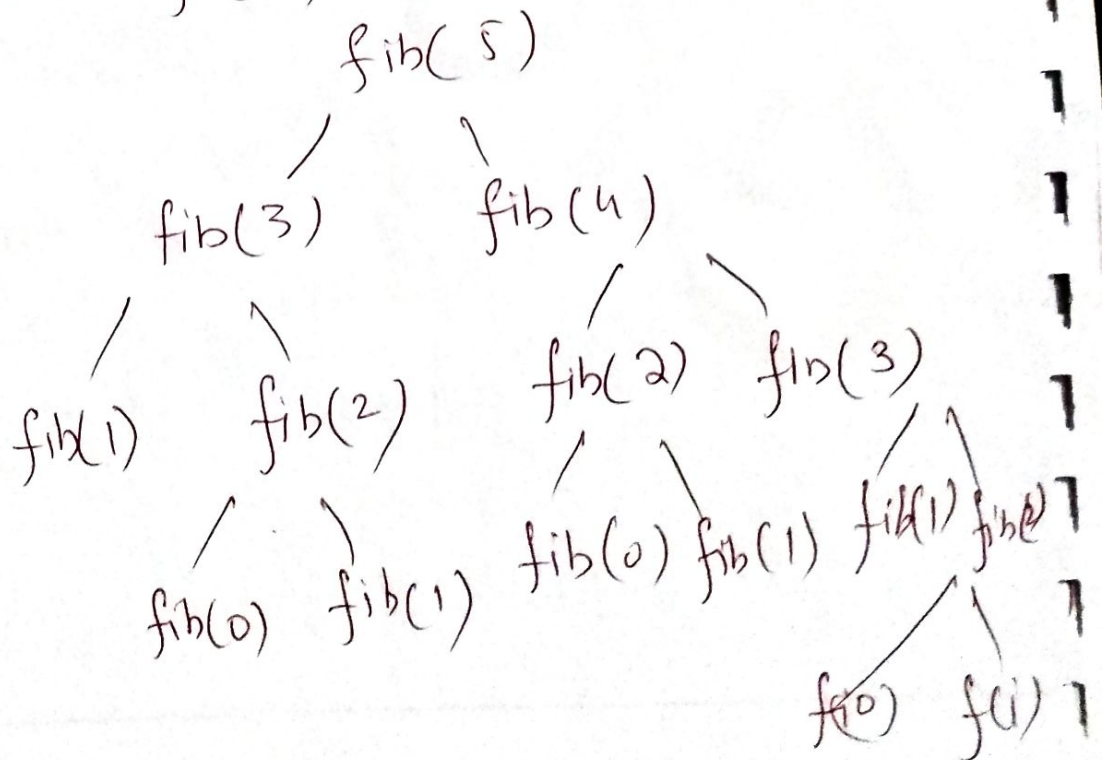 fib(5)
fib(3) fib(4)
fib(2) fib(3)
fib(1) fib(2)
fib(0) fib(1) fib(1) fib(2)
fib(0) fib(1)
f(0) f(1)